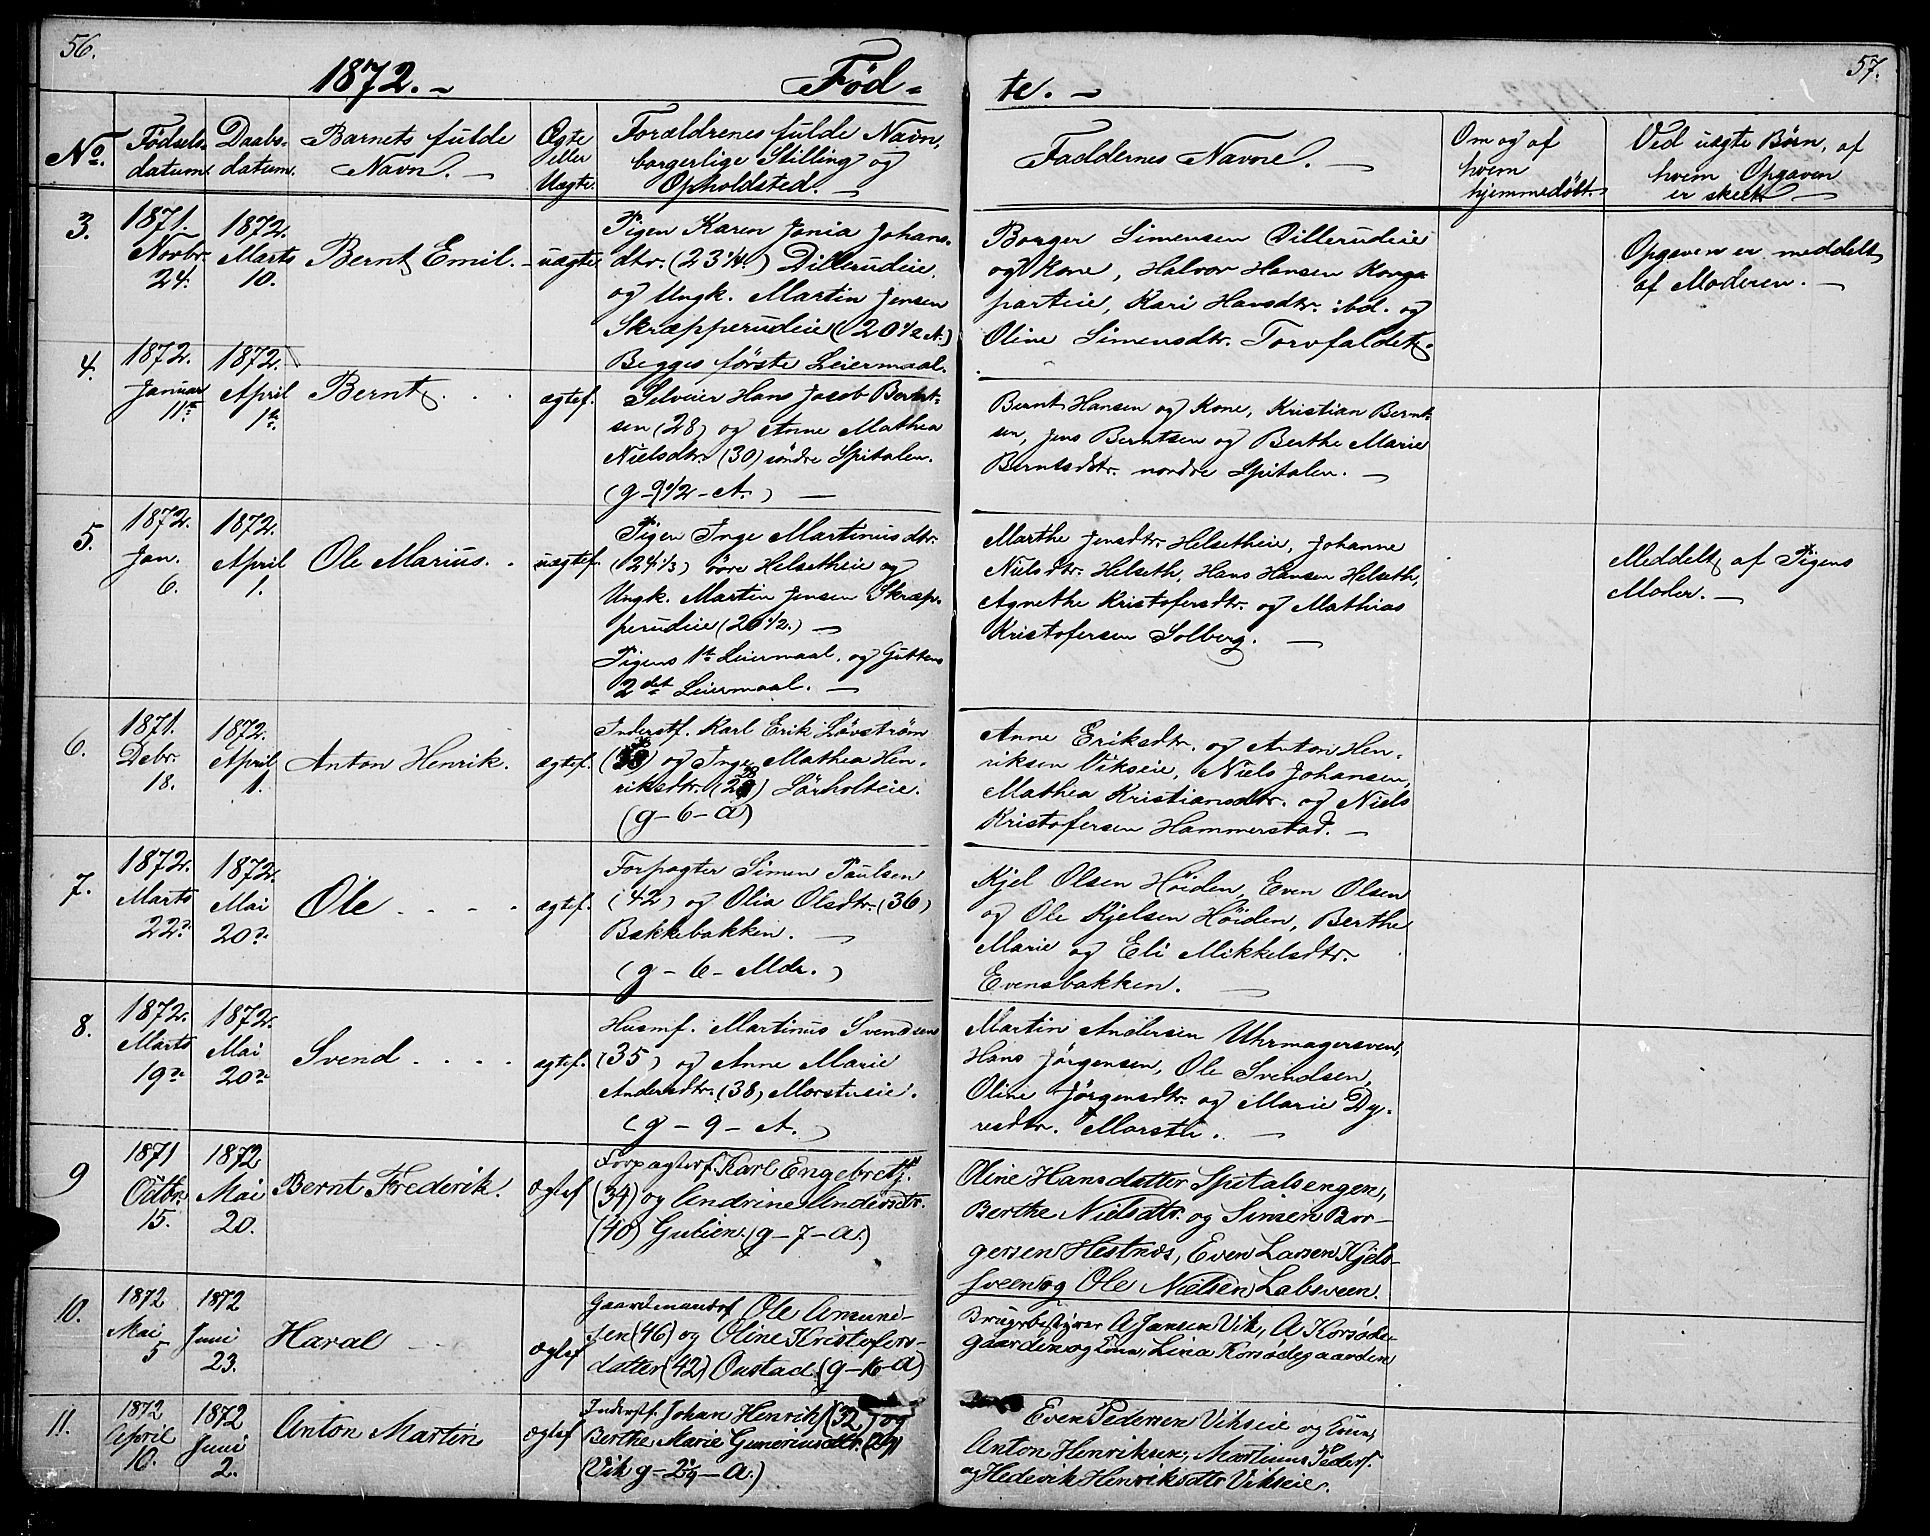 56.
57.
1872.-
Fød-
te.-
No.
Fødsels-
datum.
Daabs-
datum.
Barnets fulde
Navn.-
Ægte
eller
Uægte.
Forældrenes fulde Navn,
borgerlige Stilling og
Opholdsted.-
Faddernes Navne.-
Om og af
hvem
hjemmedøbt.
Ved uægte Børn, af
hvem Opgaven
er skeet.-
3.
1871.
Novbr.
24.
1872.
Marts
10.
Bernt Emil.-
uægte
Pigen Karen Jonia Johans-
dtr. (23 ¼.) Dillerudeie.
og Ungk. Martin Jensen
Skræpperudeie (20 ½ A.)
Begges første Leiermaal.
Borger Simensen Dillerudeie
og Kone, Halvor Hansen Konga-
parteie, Kari Hansdtr. ibd. og
Oline Simensdtr. Torvfaldet.
Opgaven er meddelt
af Moderen.-
4.
1872.
Januar
11te
1872.
April
1te.
Bernt. . .
ægtef.
Selveier Hans Jacob Bernt-
sen (28) og Anne Mathea
Nielsdtr. (30) söndre Spitalen.
(g-9½-A.)-
Bernt Hansen og Kone, Kristian Bernt-
sen, Jens Berntsen og Berthe Marie
Berntsdtr. nordre Spitalen.-
5.
1872.
Jan.
6.
1872.
April
1.
Ole Marius. .
uægtef.
Pigen Inge Martinusdtr.
(24⅓) Helsetheie og
Ungk. Martin Jensen Skræp-
perudeie (20½.)-
Pigens 1te Leiermaal, og Guttens
2det Leiermaal.-
Marthe Jensdtr. Helsetheie, Johanne
Nielsdtr. Helseth, Hans Hansen Helseth,
Agnethe Kristofersdtr. og Mathias
Kristofersen Solberg.-
Meddelt af Pigens
Moder.-
6.
1871.
Debr.
18.
1872.
April
1.
Anton Henrik.
ægtef.
Inderstf. Karl Erik Løvström
og Inge Mathea Hen-
riksdtr. Sörholteie.
(g-6-a)
Anne Eriksdtr. og Anton Hen-
riksen Vikseie, Niels Johansen,
Mathea Kristiansdtr. og Niels
Kristofersen Hammerstad.-
7.
1872.
Marts
22de
1872.
Mai
20de
Ole . . . .
ægtef.
Forpagter Simen Paulsen
(42) og Olia Olsdtr. (36)
Bakkebakken.-
(g-6-Mdr.)
Kjel Olsen Höiden, Even Olsen
og Ole Kjelsen Höiden, Berthe
Marie og Eli Mikkelsdtr.
Evensbakken.-
8.
1872.
Marts
19de
1872.
Mai
20de
Svend . . . .
ægtef.
Husmf. Martinus Svendsen
(35) og Anne Marie
Andersdtr. (38) Morstueie.
(g-9-A.)
Martin Andersen Uhrmagersven,
Hans Jørgensen, Ole Svendsen,
Oline Jørgensdtr. og Marie Dy-
resdtr. Morstu.-
9
1871
Octbr.
15.
1872
Mai
20.
Bernt Frederik.
Ægtef
Forpagterf. Karl Engebretf.
(34) og Andrine Andersdtr.
(40) Gulien. (g-7-a.)
Oline Hansdatter Spitalsengen,
Berthe Nielsdtr. og Simen Bor-
gersen Hestnes, Even Larsen Kjels-
sveen og Ole Nielsen Labsveen.
10.
1872
Mai
5
1872
Juni
23.
Haral - -
Ægtef
Gaardmandsf Ole Amund-
sen (46) og Oline Kristofers-
datter (42) Oustad (g-16-a)
Brugsbestyrer A Jansen Vik, A Korsøde-
gaarden og Kone, Lina Korsødegaarden
11.
1872
April
10.
1872
Juni
2.
Anton Martin
Ægtef
Inderstf. Johan Henriks (32) og
Berthe Marie Guneriusdtr.
(Vik g- -a.)
Even Pedersen Vikseie og Kone,
Anton Henriksen, Martinus Peders.
og Hedevik Henriksdtr Vikseie.